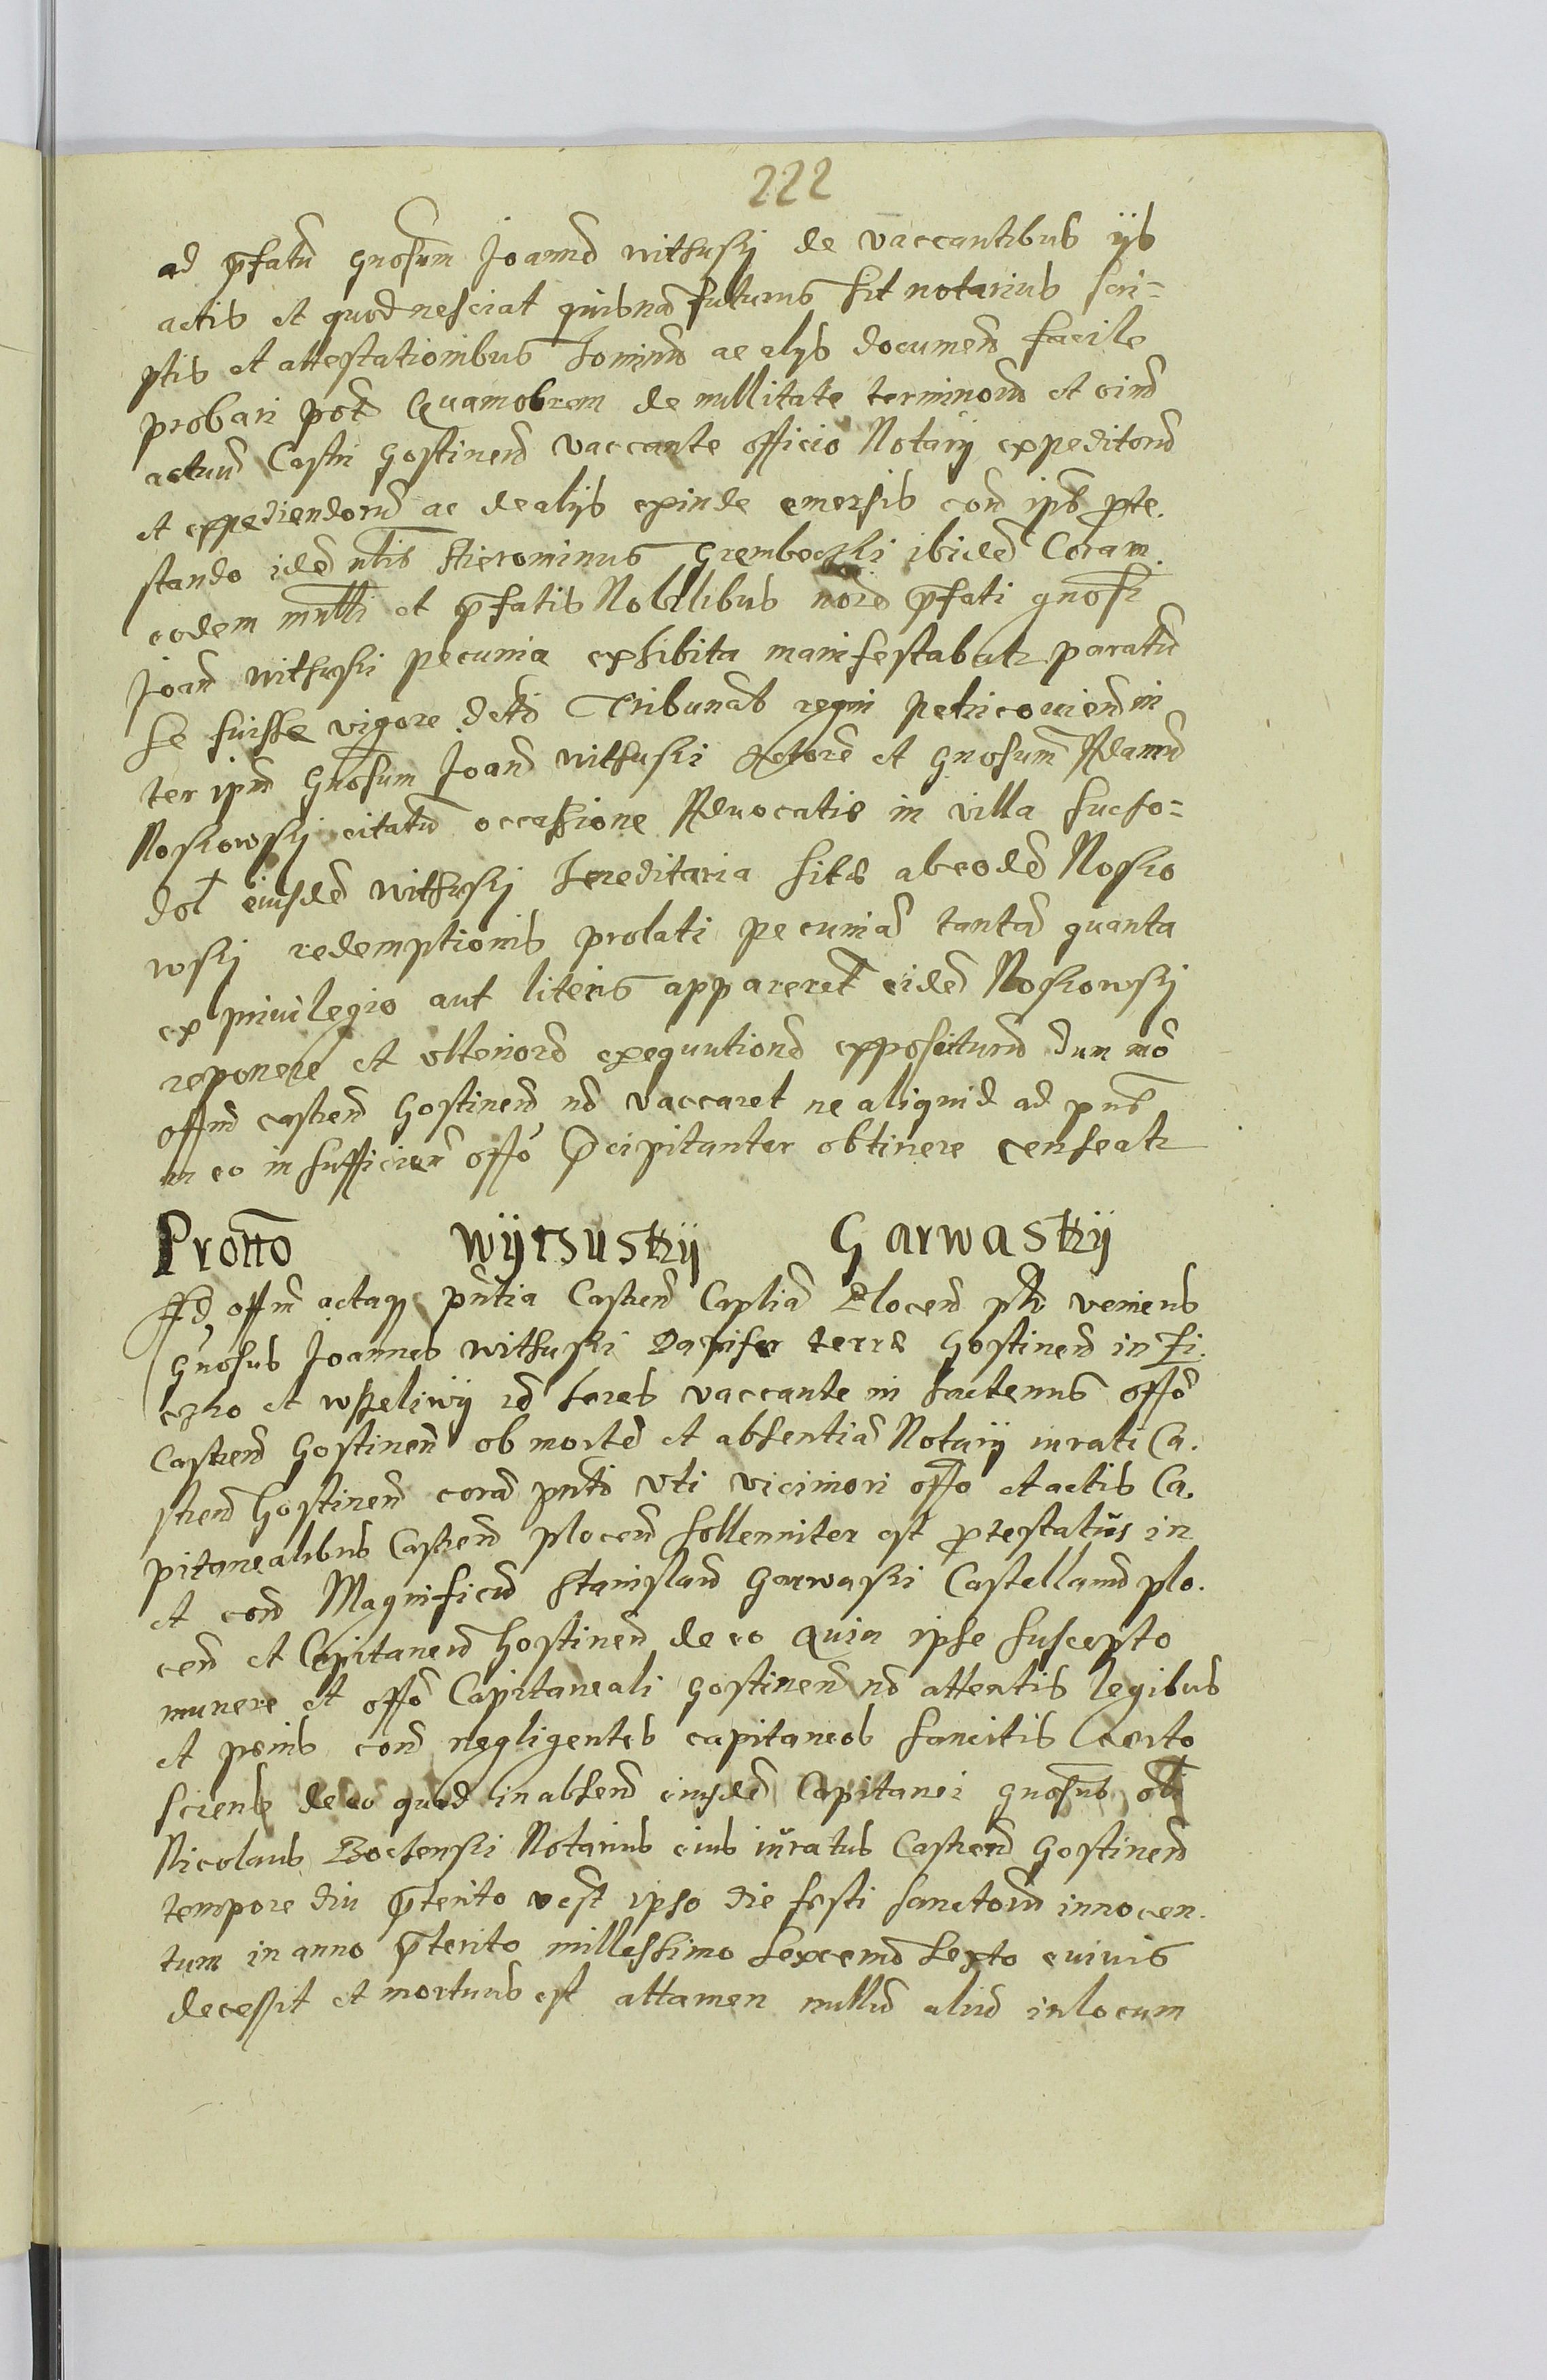 222
ad p̄fatū gnosum Joannē withuskj de vaccantibus ijs
actis et quod nesciat quisnā futurus sit notarius scri=
ptis et attestationibus hominū ac alijs documen̄ facile
probari pot̄ Quamobrem de nullitate terminorū et oīm̄
actuū Castri Gostinen̄ vaccante officio Notarij expeditorū
et expediendorū ac de alijs exinde emersis con̄ ips̄ p̄te.
stando idē nl̄is Hierominus Grembecki ibidē Coram
eodem mlt̄i et p̄fatis Nobilibus noīe p̄fati gnosi
Joan̄ withuski pecunia exhibita manifestabatr paratū
se fuisse vigore dct̄i Tribunal̄s regni petricouien̄ in
ter ipm̄ Gnosum Joan̄ withuski Actorē et Gnosum Adamū
Noskowskj citatū occassione Aduocatie in villa sucho=
dol eiusdē withuskj hereditaria sitē ab eodē Nosko
wskj redemptionis prolati pecuniā tantā quanta
ex priuilegio aut literis appareret eidē Noskowskj
reponere et vlteriorē exequutionē expositurū dum mō
offm̄ castren̄ Gostinen̄ nō vaccaret ne aliquid ad pn̄s
in eo in sufficien̄ offō p̄cipitanter obtinere censeatr
Prott̄o wÿtsuskÿ Garwaskÿ
Ad offm̄ actaq̨ pn̄tia Castren̄ Captīa Plocen̄ pl̄r veniens
Gnosus Joannes withuski Dapifer terrē Gostinen̄ in
et wszeliwÿ heres vaccante in hactenus offō
Castren̄ Gostinen̄ ob mortē et absentiā Notarij iurati Ca.
stren̄ Gostinen̄ corā pn̄ti vti viciniori offo et actis Ca.
pitanealibus Castren̄ plocen̄ sollenniter est p̄testatus in
et con̄ Magnificū Stanislaū Garwaski Castellanū plo.
cen̄ et Capitaneū Gostinen̄ de eo quia ipse suscepto
munere et offō Capitaneali Gostinen̄ nō attentis legibus
et pœnis con̄ negligentes capitaneos sancitis Certo
sciens de eo quod in absen̄ eiusdē Capitanei gnosus oli̅
Nicolaus Bochenski Notarius eius iuratus Castren̄ Gostinen̄
tempore diu p̄terito vest ipso die festi sanctorū innocen.
tum in anno p̄terito millessimo sexcenō sexto e viuis
decessit et mortuus est attamen nullū aliū in locum